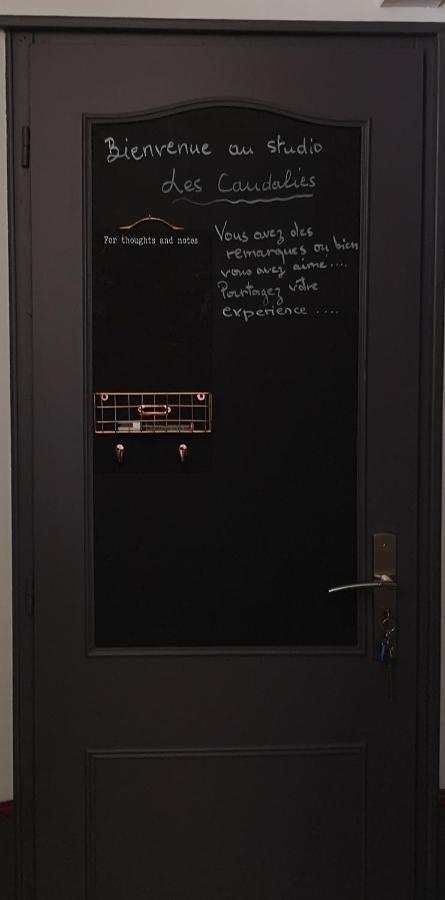 Bienvenue au studio
Les Caudalies
For thoughts and notes
Vous avez des
remarques ou bien
vous avez aimé....
Partagez votre
experience ....